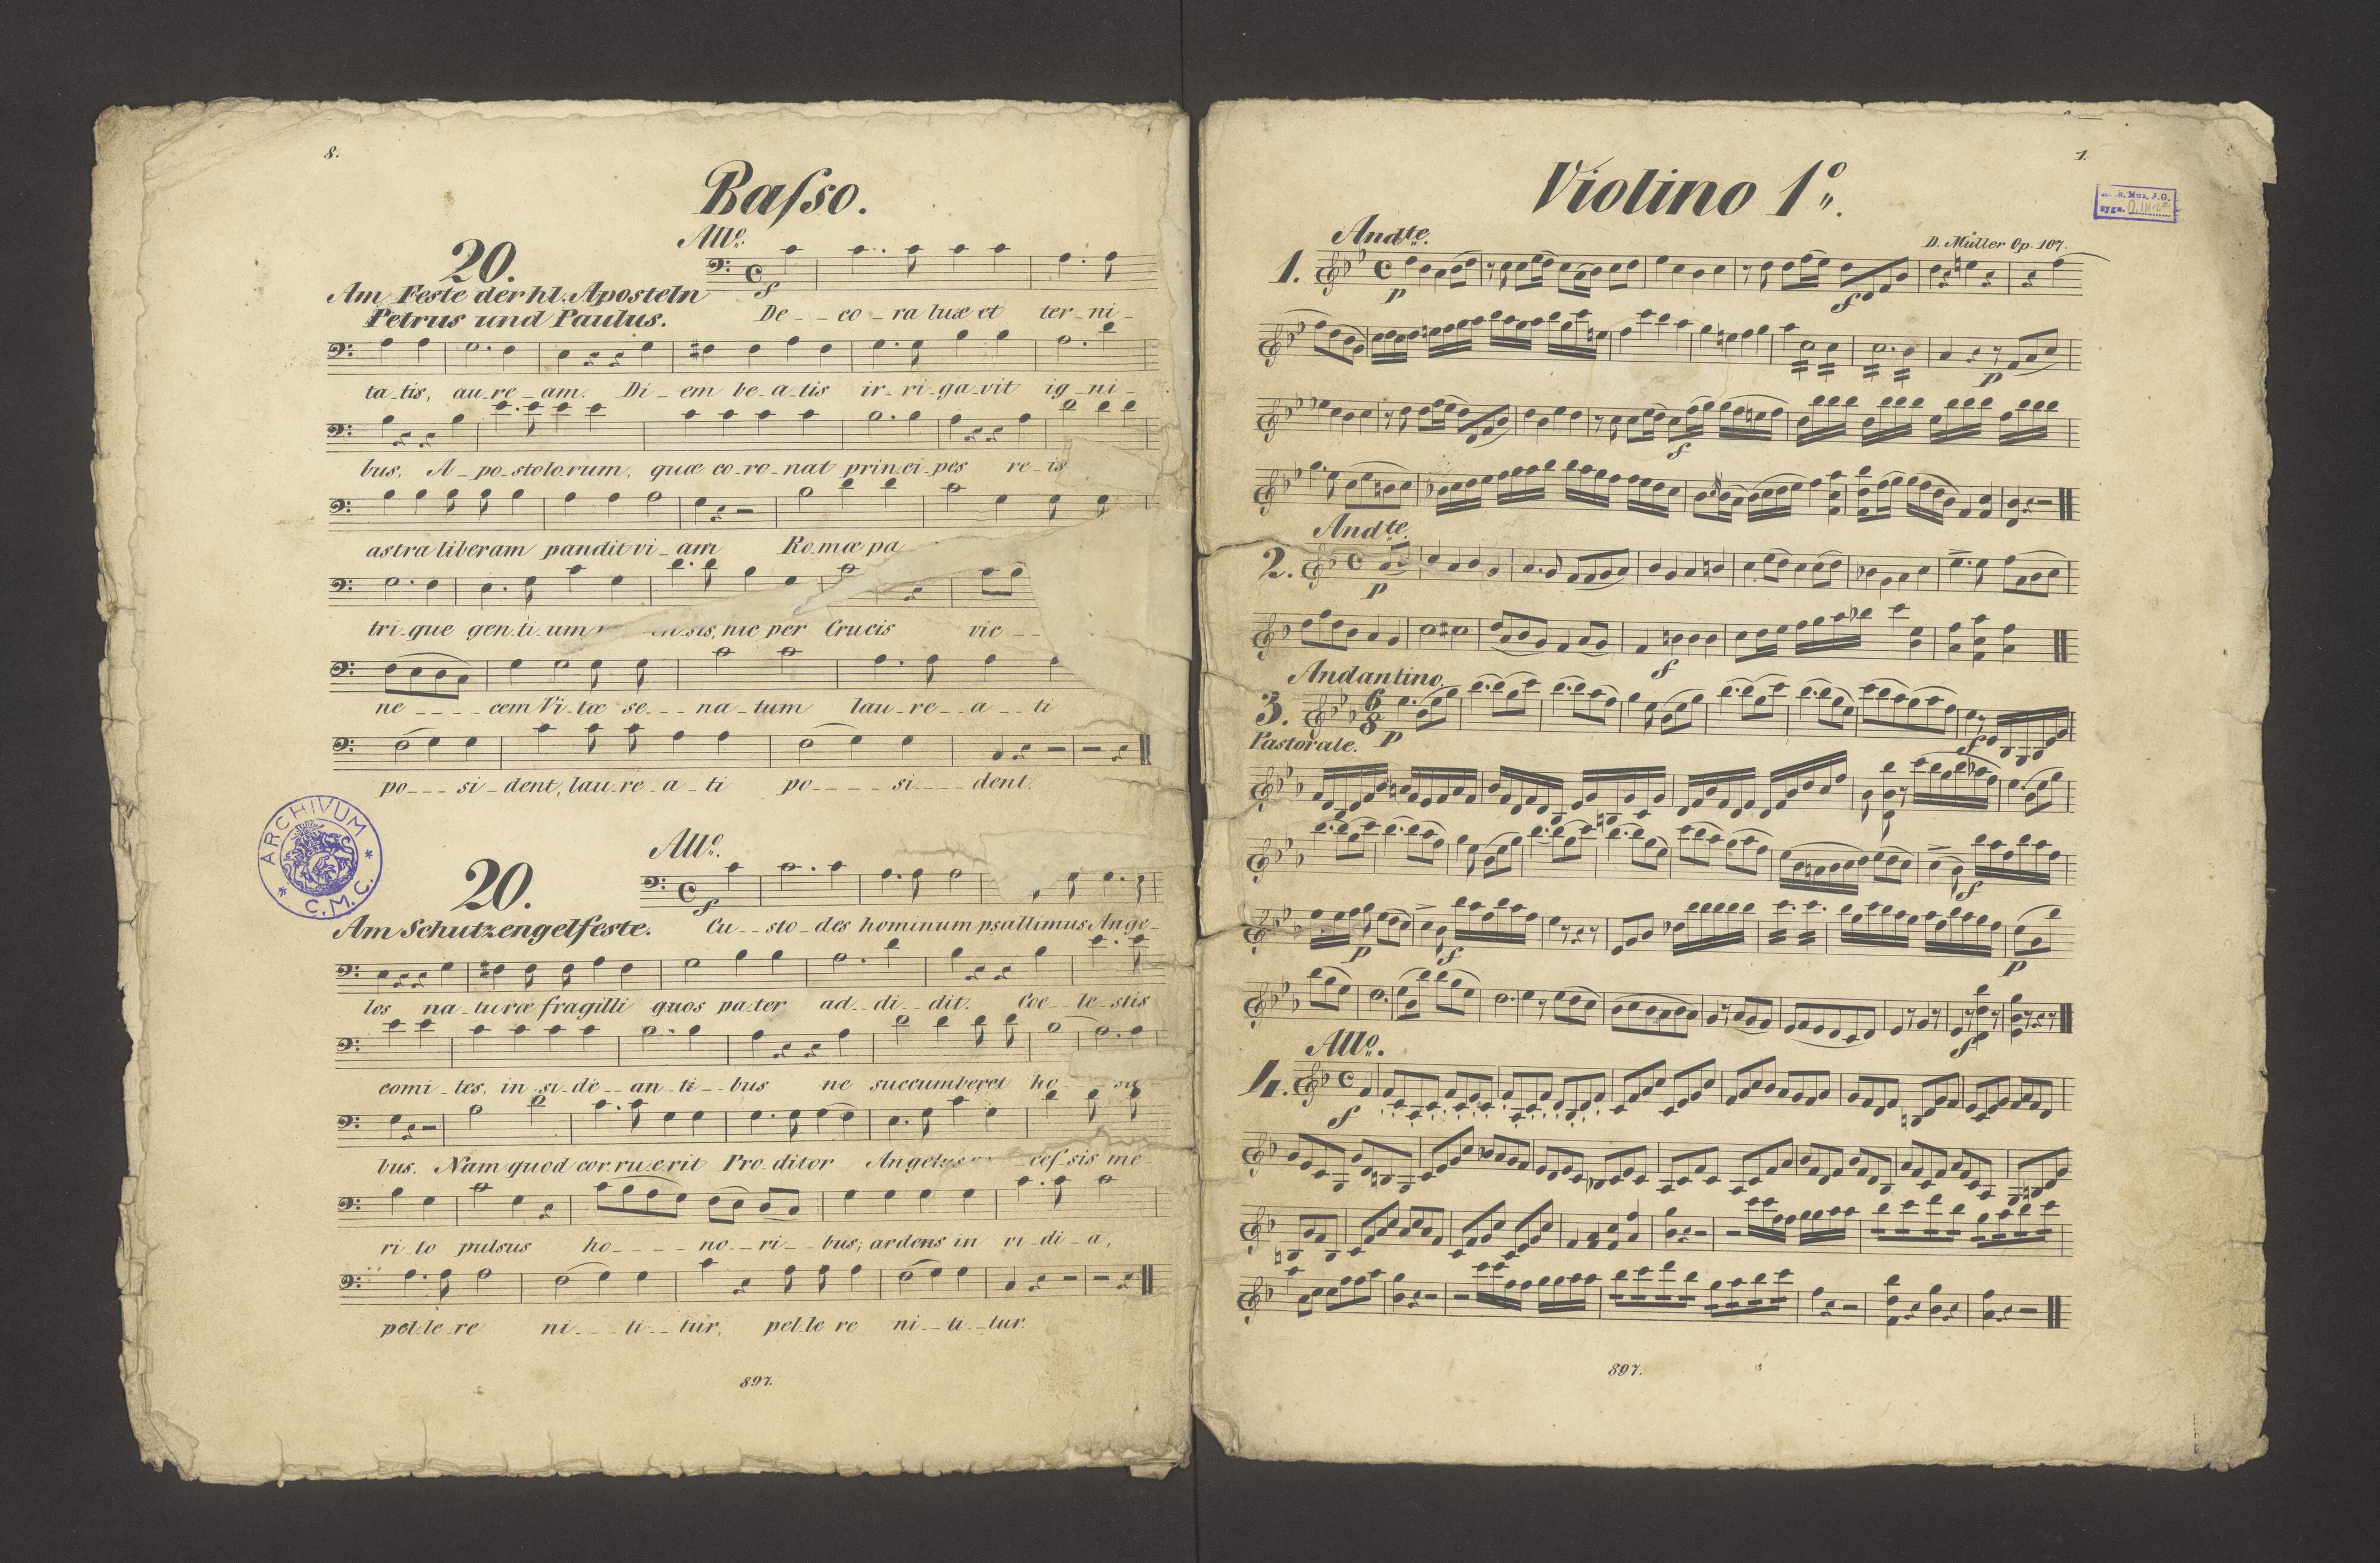 8.
Baſso.
20.
Am Feste der hl. Aposteln
Petrus und Paulus.
Allo.
f
De - - co - ra lux et ter - ni -
ta - tis, au - re - am. Di - em be - a - tis ir - ri - ga - vit ig - ni -
bus, A - po - stolo. rum, quæ co - ro - nat prin. ci - pes re - is
astra liberam pandit vi - am Ro. mæ pa
tri - que gen. ti - um sis, hic per Crucis vic - -
ne - - - - cem Vi - tæ se - - - na - tum lau - re - a - - ti
po - - - si - dent, lau - re - a - ti po - - - - si - - - dent.
ARCHIVUM
* C. M. C. *
20.
Am Schutzengelfeste.
Allo.
f
Cu - - sto - des hominum psallimus Ange -
los na - turæ fragilli quos pa - ter ad - di - dit. Coe - le - stis
comi - tes, in - si - de - - an - ti - - bus ne succumberet ho
bus. Nam quod cor. ru. e. rit Pro - ditor Angelus ceſ - sis me
ri - to pulsus ho - - - - no - - ri - - bus; ardens in vi - di - a,
pel - le - re ni - - - ti - - tur, pel. le re ni - - ti - tur.
897.
Violino 1o.
1.
Mus. J.G.
sygn.
D. Müller Op. 107.
Andte.
1.
p
f
p
f
Andte.
2.
p
f
Andantino.
3.
6
8
Pastorale.
p
f
f
p
f
p
f
Allo.
4.
f
897.